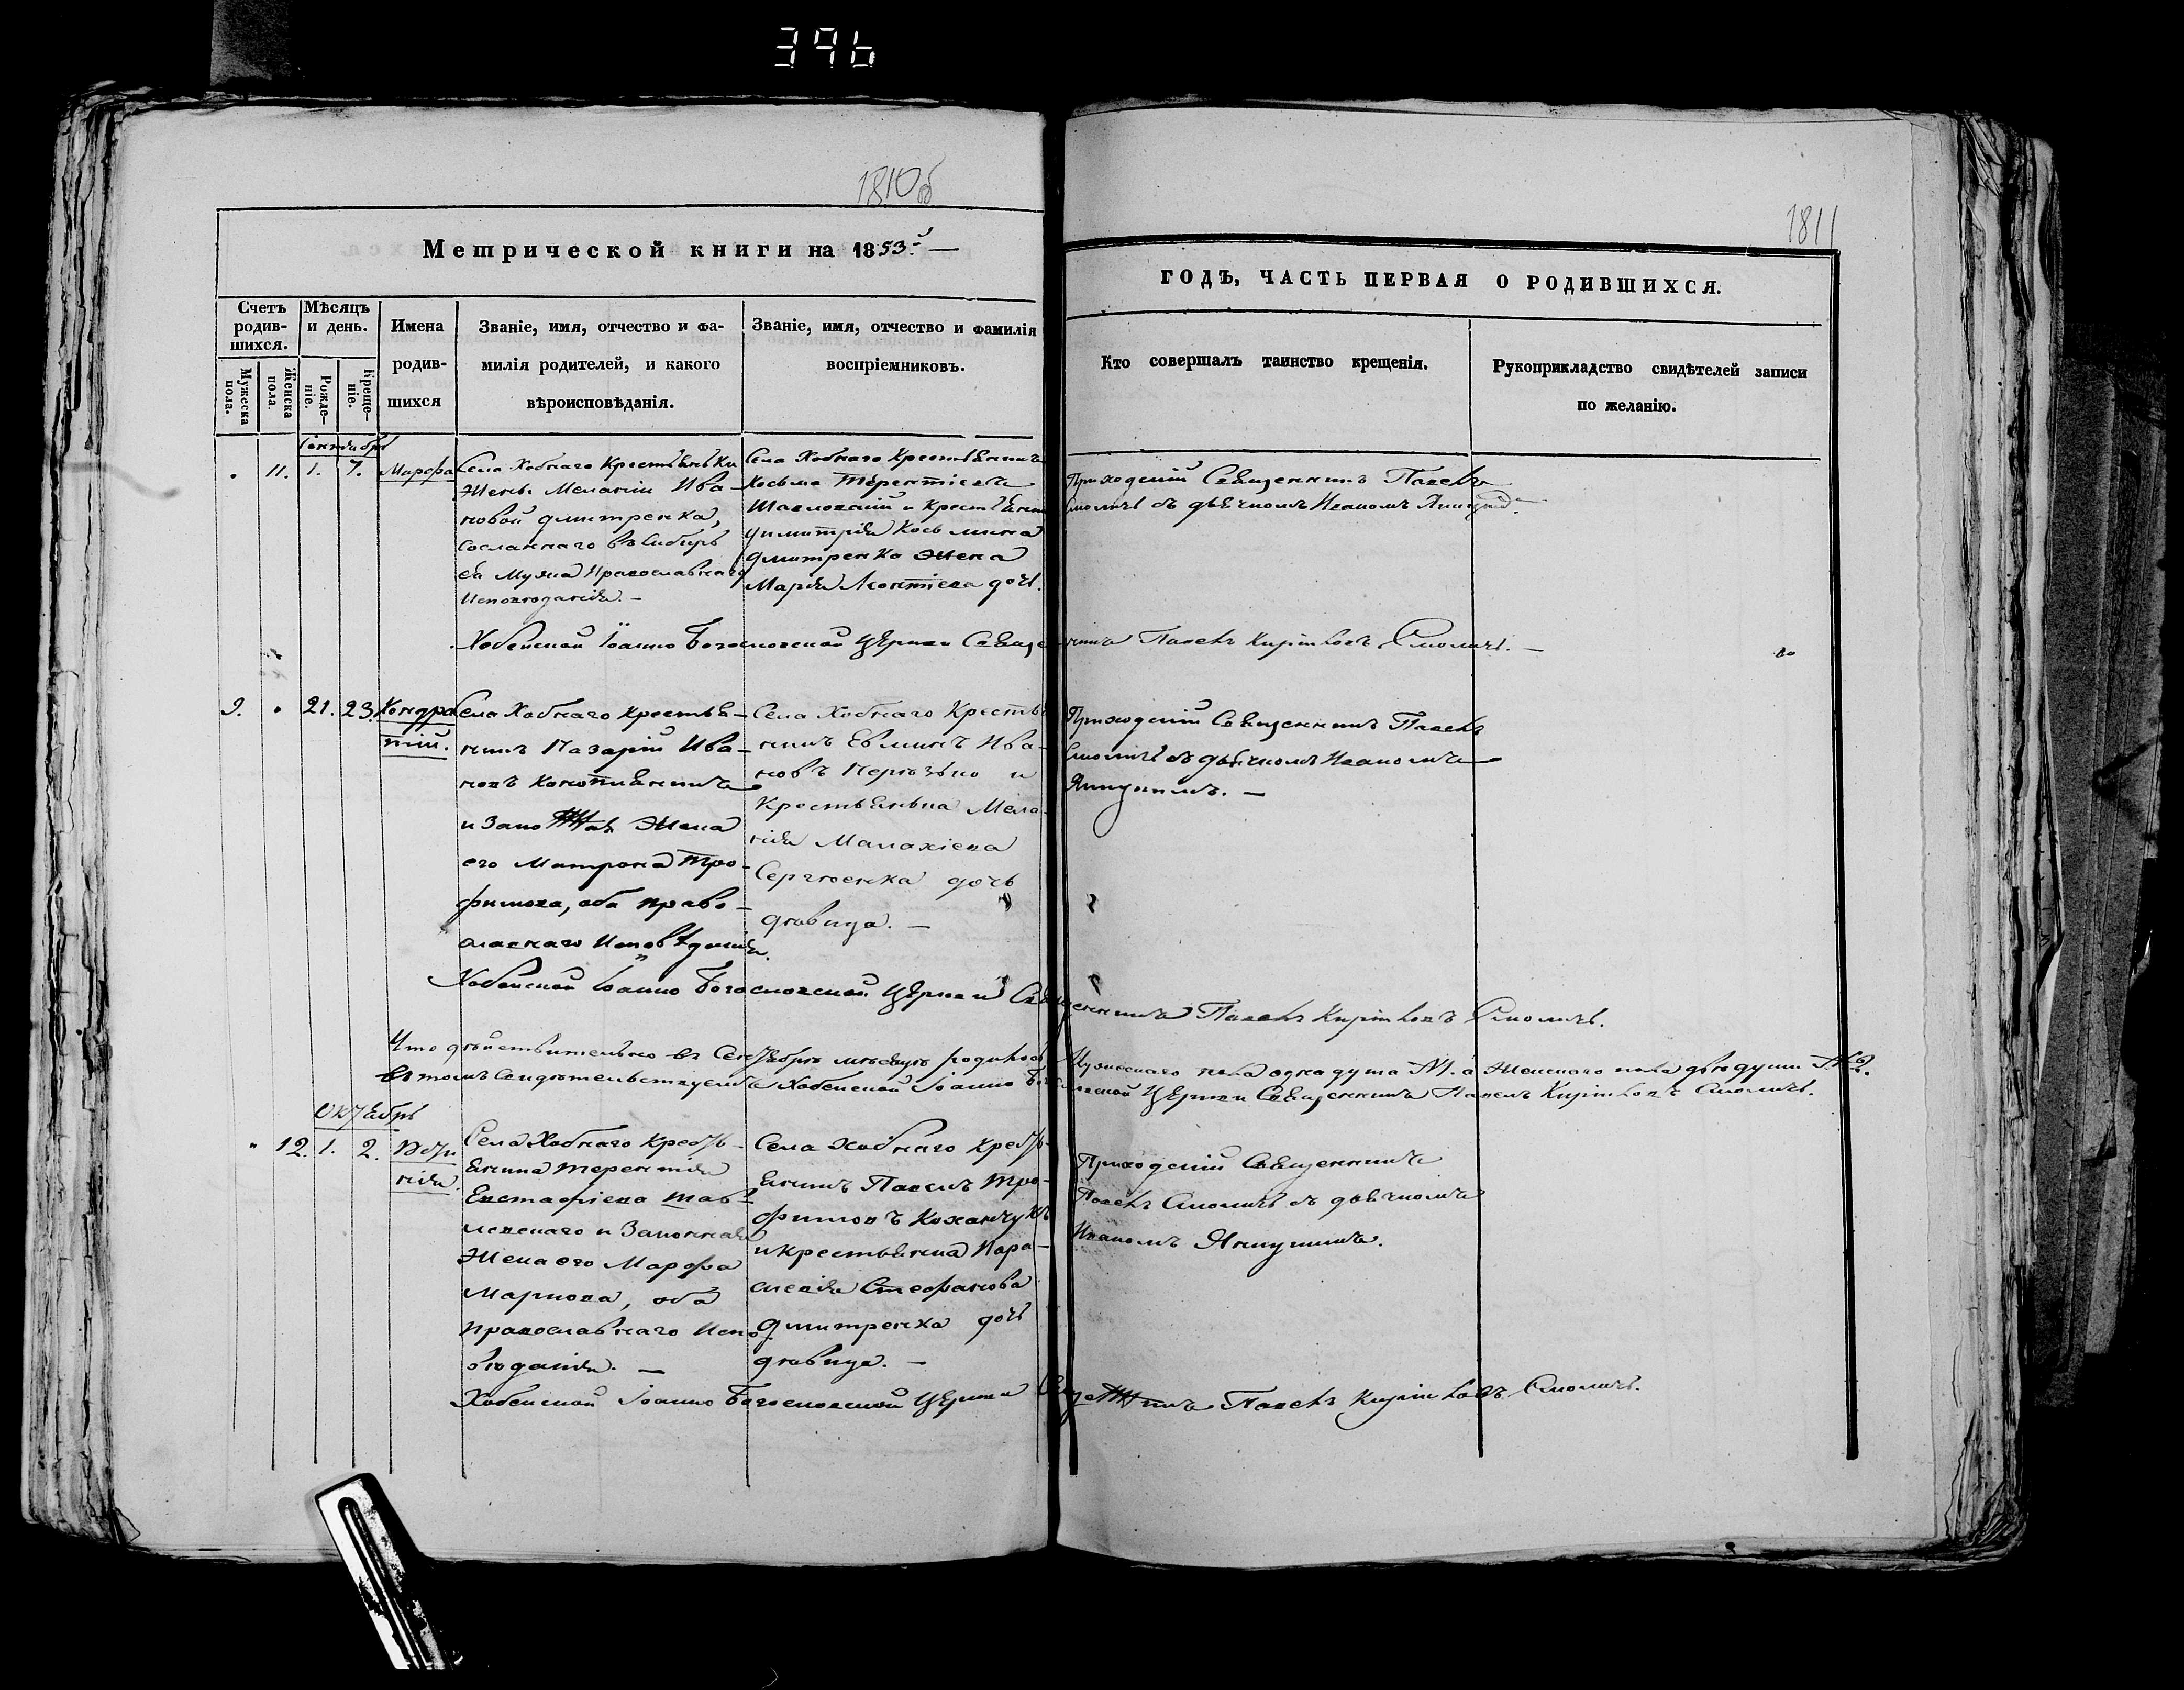 396
1810об
1811
Метрической книги на 1853й
ГОДЪ, ЧАСТЬ ПЕРВАЯ О РОДИВШИХСЯ.
Счетъ родив-шихся.
Мужеска пола.
Женска пола.
Мѣсяцъ и день.
Рожде-ніе.
Креще-ніе.
Имена
родив-
шихся
Званіе, имя, отчество и фа-
милія родителей, и какого
вѣроисповѣданія.
Званіе, имя, отчество и фамилія
воспріемниковъ.
Кто совершалъ таинство крещенія.
Рукоприкладство свидѣтелей записи
по желанію.
Сентябрь
11. 1. 7. Марѳа
Села Хобнаго Крестьянки
Жены Меланіи Ива-
новой Дмитренка,
сосланнаго въ Сибирь
ея Мужа Православнаго
Исповѣданія. —
Села Хобнаго Крестьянинъ
Косьма Терентіевъ
и Крестьянина
Димитрія Косьмина
Дмитренко Жена
Марія Леонтіева дочь.
Приходскій Священникъ Павелъ
Смоличь съ дьячкомъ Иваномъ
Хобенской Іоанно Богословской Церкви Священникъ Павелъ Кириловъ Смоличь. —
9. 21. 23. Кондра
тій.
Села Хобнаго Крестья-
нинъ Назарій Ива-
новъ Конотпянинъ
и Законная Жена
его Матрона Тро-
фимова, оба право-
славнаго Исповѣданія.
Села Хобнаго Крестья
нинъ Евминъ Ива-
новъ и
Крестьянка Мела-
нія Малахіева
Сергіенка дочь
дѣвица. —
Приходскій Священникъ Павелъ
Смоличь съ дьячкомъ Иваномъ
Хобенской Іоанно Богословской Церкви Священникъ Павелъ Кириловъ Смоличь.
Что дѣйствительно въ Сентябрѣ мѣсяцѣ родилось Мужескаго пола одна душа №1. а Женскаго пола двѣ души №2.
въ томъ свидѣтельствуемъ Хобенской Іоанно Богословской Церкви Священникъ Павелъ Кириловъ Смоличь.
Октябрь
12. 1. 2.
Села Хобнаго Кресть-
янина Терентія
Евстафіева
и Законная
Жена его Марѳа
Маркова, оба
православнаго Испо
вѣданія. —
Села Хобнаго Кресть-
янинъ Павелъ Тро-
фимовъ Коханчукъ
и Крестьянка Пара-
скевія Стефанова
Дмитренка дочь
дѣвица. —
Приходскій Священникъ
Павелъ Смоличь съ дьячкомъ
Иваномъ
Хобенской Іоанно Богословской Церкви Священникъ Павелъ Кириловъ Смоличь.